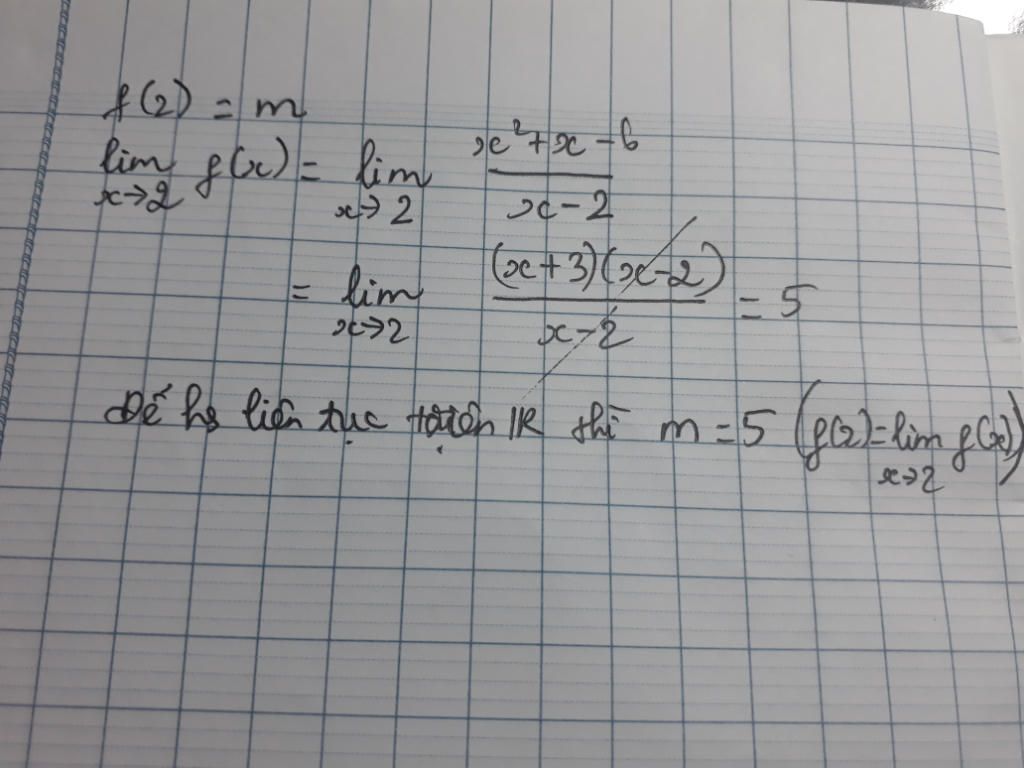 f(2) = m
lim x→2 f(x) = lim x→2 (x² + x − 6)/(x − 2)
= lim x→2 (x + 3)(x − 2)/(x − 2) = 5
Để hs liên tục trên ℝ thì m = 5 (f(2) = lim x→2 f(x))